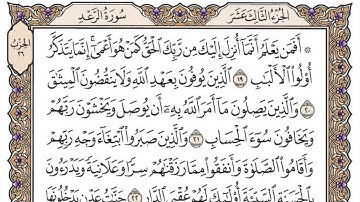 الجزء الثالث عشر سورة الرعد
الحزب ٢٦
۞ أَفَمَن يَعْلَمُ أَنَّمَآ أُنزِلَ إِلَيْكَ مِن رَّبِّكَ ٱلْحَقُّ كَمَنْ هُوَ أَعْمَىٰٓ ۚ إِنَّمَا يَتَذَكَّرُ
أُو۟لُوا۟ ٱلْأَلْبَـٰبِ ١٩ ٱلَّذِينَ يُوفُونَ بِعَهْدِ ٱللَّهِ وَلَا يَنقُضُونَ ٱلْمِيثَـٰقَ
٢٠ وَٱلَّذِينَ يَصِلُونَ مَآ أَمَرَ ٱللَّهُ بِهِۦٓ أَن يُوصَلَ وَيَخْشَوْنَ رَبَّهُمْ
وَيَخَافُونَ سُوٓءَ ٱلْحِسَابِ ٢١ وَٱلَّذِينَ صَبَرُوا۟ ٱبْتِغَآءَ وَجْهِ رَبِّهِمْ
وَأَقَامُوا۟ ٱلصَّلَوٰةَ وَأَنفَقُوا۟ مِمَّا رَزَقْنَـٰهُمْ سِرًّا وَعَلَانِيَةً وَيَدْرَءُونَ
بِٱلْحَسَنَةِ ٱلسَّيِّئَةَ أُو۟لَـٰٓئِكَ لَهُمْ عُقْبَى ٱلدَّارِ ٢٢ جَنَّـٰتُ عَدْنٍ يَدْخُلُونَهَا